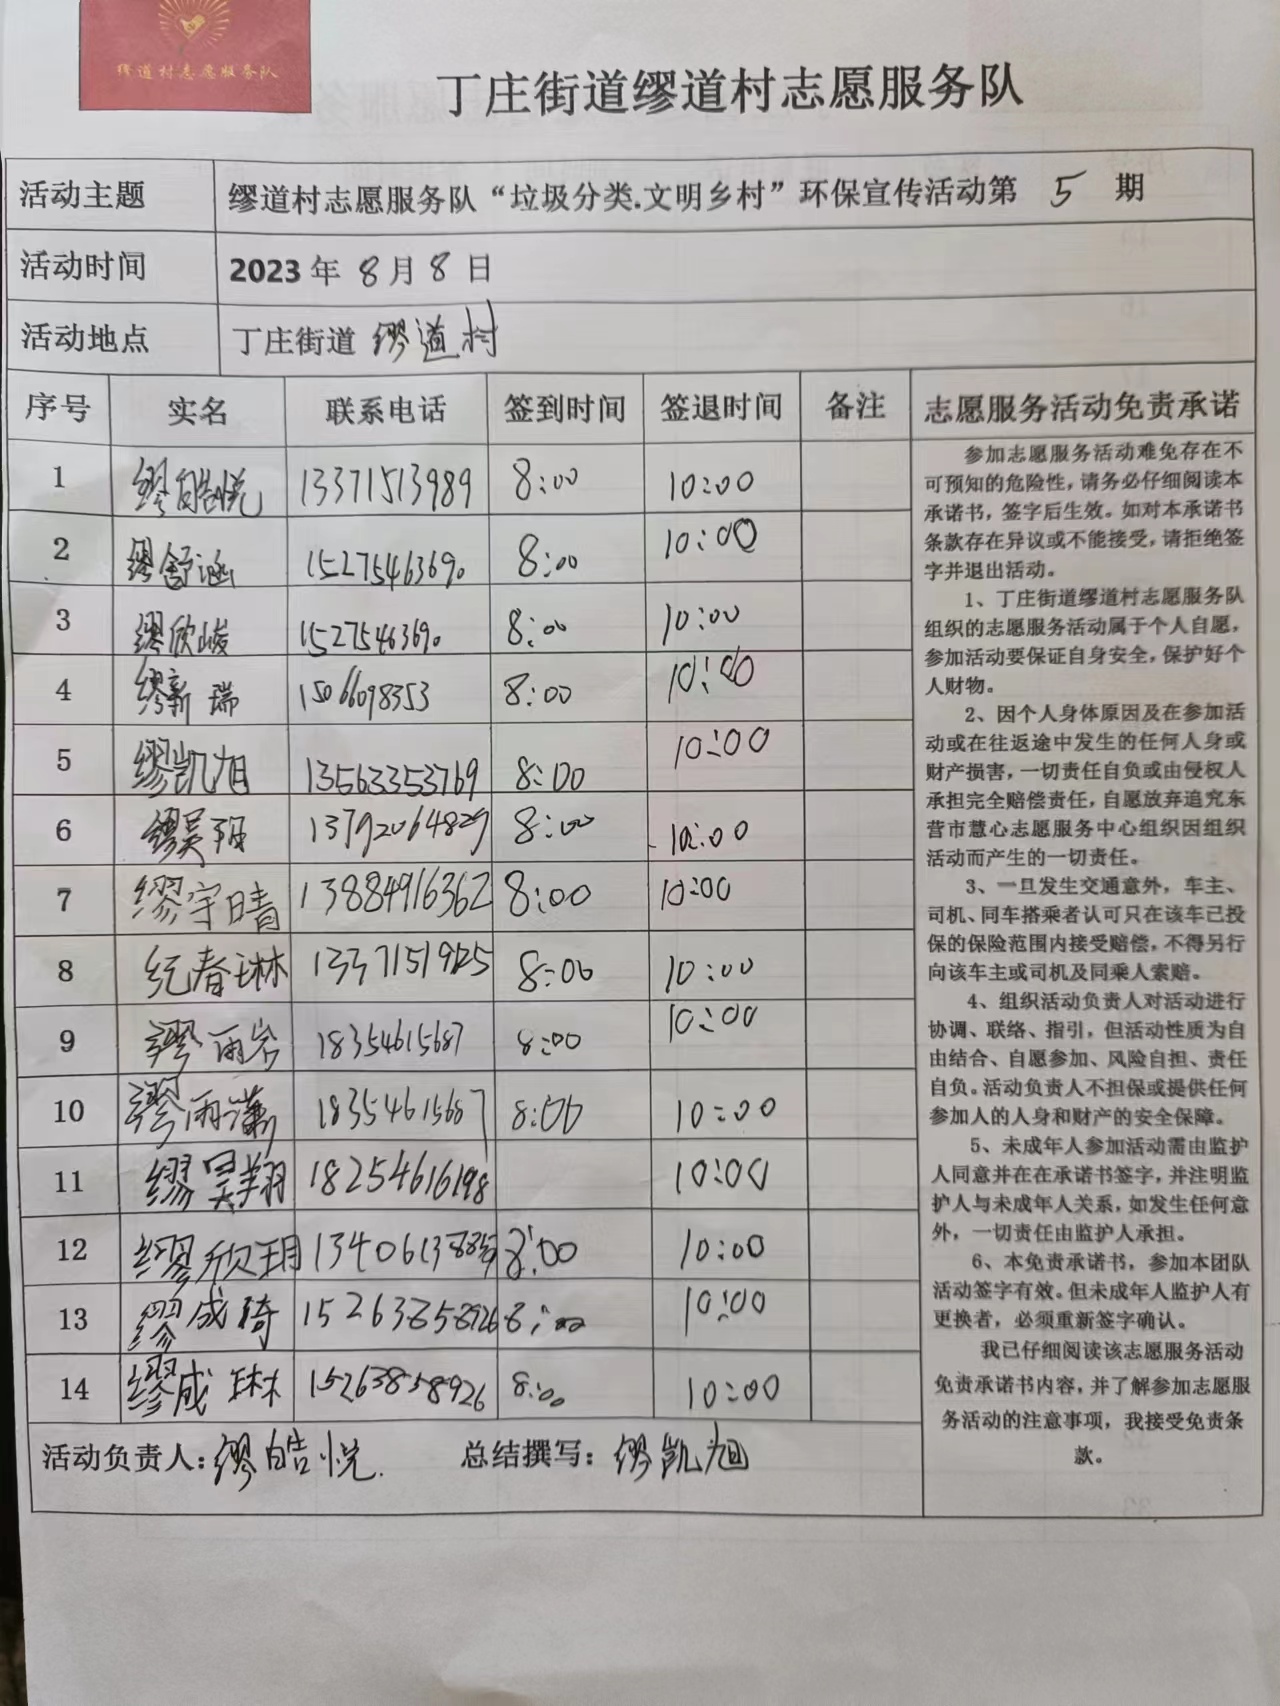 缪道村志愿服务队
丁庄街道缪道村志愿服务队
活动主题 缪道村志愿服务队“垃圾分类.文明乡村”环保宣传活动第 5 期
活动时间 2023年8月8日
活动地点 丁庄街道 缪道村
序号 实名 联系电话 签到时间 签退时间 备注
1 缪皓悦 13371513989 8:00 10:00
2 缪舒涵 15275463690 8:00 10:00
3 缪欣峻 15275463690 8:00 10:00
4 缪新瑞 15066098353 8:00 10:00
5 缪凯旭 13563353769 8:00 10:00
6 缪昊 13792064829 8:00 10:00
7 缪宇晴 13884916362 8:00 10:00
8 纪春琳 8:00 10:00
9 缪雨岩 18354615687 8:00 10:00
10 缪雨潇 18354615687 8:00 10:00
11 缪昊翔 18254616198 10:00
12 缪欣玥 8:00 10:00
13 缪成琦 15263858926 8:00 10:00
14 缪成琳 15263858926 8:00 10:00
活动负责人：缪皓悦. 总结撰写：缪凯旭
志愿服务活动免责承诺
参加志愿服务活动难免存在不
可预知的危险性，请务必仔细阅读本
承诺书，签字后生效。如对本承诺书
条款存在异议或不能接受，请拒绝签
字并退出活动。
1、丁庄街道缪道村志愿服务队
组织的志愿服务活动属于个人自愿，
参加活动要保证自身安全，保护好个
人财物。
2、因个人身体原因及在参加活
动或在往返途中发生的任何人身或
财产损害，一切责任自负或由侵权人
承担完全赔偿责任，自愿放弃追究东
营市慧心志愿服务中心组织因组织
活动而产生的一切责任。
3、一旦发生交通意外，车主、
司机、同车搭乘者认可只在该车已投
保的保险范围内接受赔偿，不得另行
向该车主或司机及同乘人索赔。
4、组织活动负责人对活动进行
协调、联络、指引，但活动性质为自
由结合、自愿参加、风险自担、责任
自负。活动负责人不担保或提供任何
参加人的人身和财产的安全保障。
5、未成年人参加活动需由监护
人同意并在在承诺书签字，并注明监
护人与未成年人关系，如发生任何意
外，一切责任由监护人承担。
6、本免责承诺书，参加本团队
活动签字有效。但未成年人监护人有
更换者，必须重新签字确认。
我已仔细阅读该志愿服务活动
免责承诺书内容，并了解参加志愿服
务活动的注意事项，我接受免责条
款。